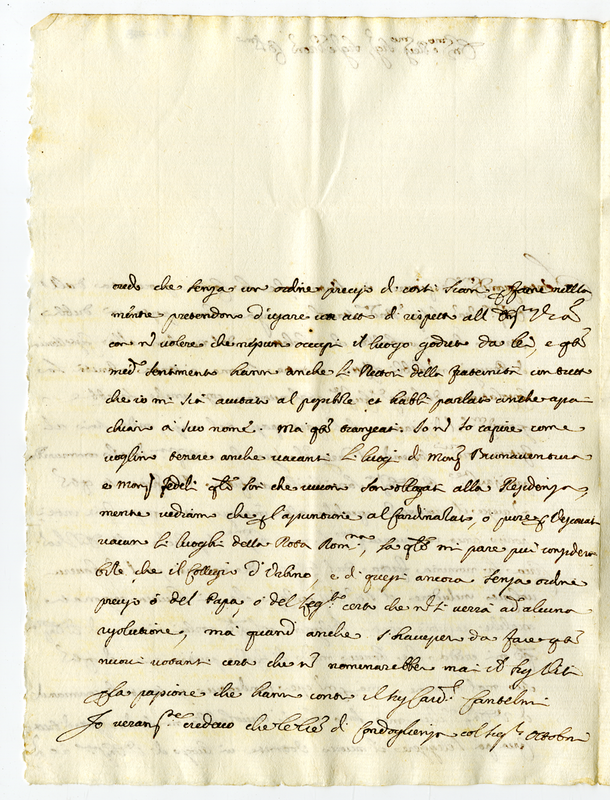 credo che senza un ordine preciso di costì siano p farne nulla
mentre pretendono d'usare un atto di rispetto all'
con nõ volere che nissun occupi il luogo goduto da lei, e qsto
med.º sentimento hanno anche li Rettori della fraternità con tutto
che io mi sia aiutato al possibile et habbi parlato anche a più
chiari a suo nome. Ma qsti. Io nõ sò capire come
voglino tenere anche vacanti li luoghi di Mons Buonaventura
e Mons fedeli qsto sò che non son obligati alla Residenza,
mentre vediamo che p l'assunzione al Cardinalato, ò pure p Vescovati
vacano li luoghi della Rota Rom.na, la qle mi pare più considera
bile, che il Collegio d'Urbino, e di questi ancora senza ordine
preciso ò del Papa, ò del Leg.to certo che nõ si verrà ad alcuna
risolutione, ma quando anche s'havesser da fare qsti
nuovi votanti certo che nõ nominarebber mai il Sig
p la passione che hanno contro il Sig Card.l Fantelmi
Io veram.te credevo che le lre di Condoglienza col Sig.r Ottoboni